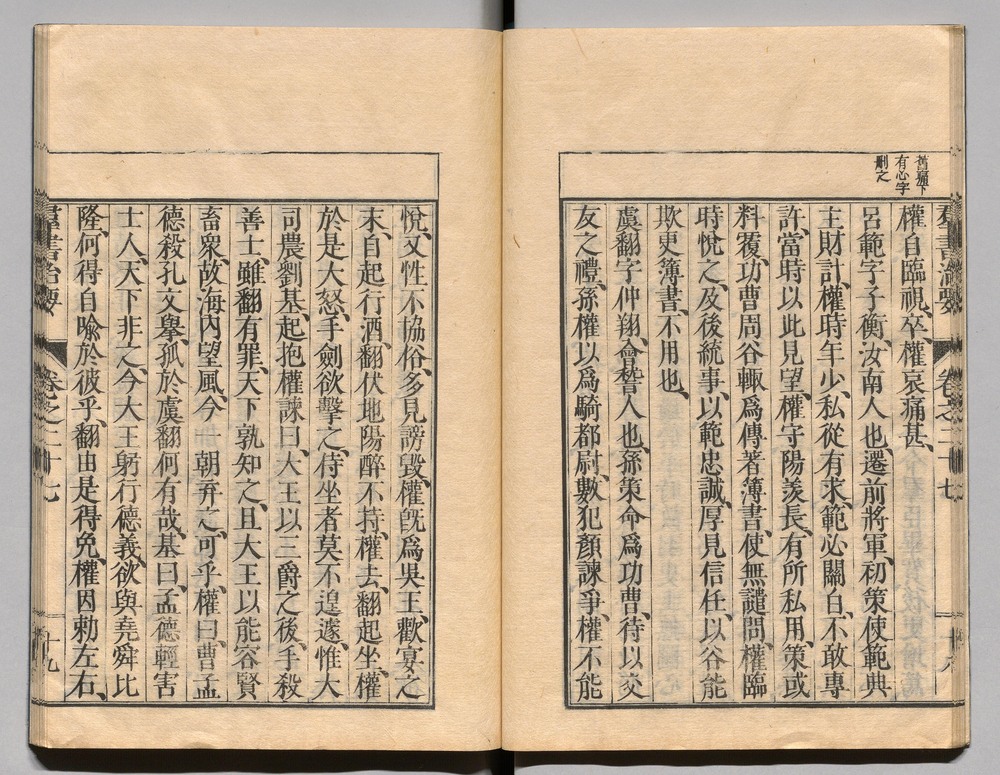 舊痛下
有心字
刪之
羣書治要
卷之二十七
十八
權自臨視、卒、權哀痛甚、
呂範字子衡、汝南人也、遷前將軍、初策使範典
主財計、權時年少、私從有求、範必關白、不敢專
許、當時以此見望、權守陽羨長、有所私用、策或
料覆、功曹周谷輒爲傅著簿書、使無譴問、權臨
時悅之、及後統事、以範忠誠、厚見信任、以谷能
欺更簿書、不用也、
虞翻字仲翔、會稽人也、孫策命爲功曹、待以交
友之禮、孫權以爲騎都尉、數犯顏諫爭、權不能
悅、又性不協俗、多見謗毀、權既爲吳王、歡宴之
末、自起行酒、翻伏地陽醉不持、權去、翻起坐、權
於是大怒、手劍欲擊之、侍坐者莫不遑遽、惟大
司農劉基、起抱權諫曰、大王以三爵之後、手殺
善士、雖翻有罪、天下孰知之、且大王以能容賢
畜衆、故海內望風、今一朝弃之、可乎、權曰、曹孟
德殺孔文擧、孤於虞翻何有哉、基曰、孟德輕害
士人、天下非之、今大王躬行德義、欲與堯舜比
隆、何得自喩於彼乎、翻由是得免、權因勅左右、
羣書治要
卷之二十七
十九